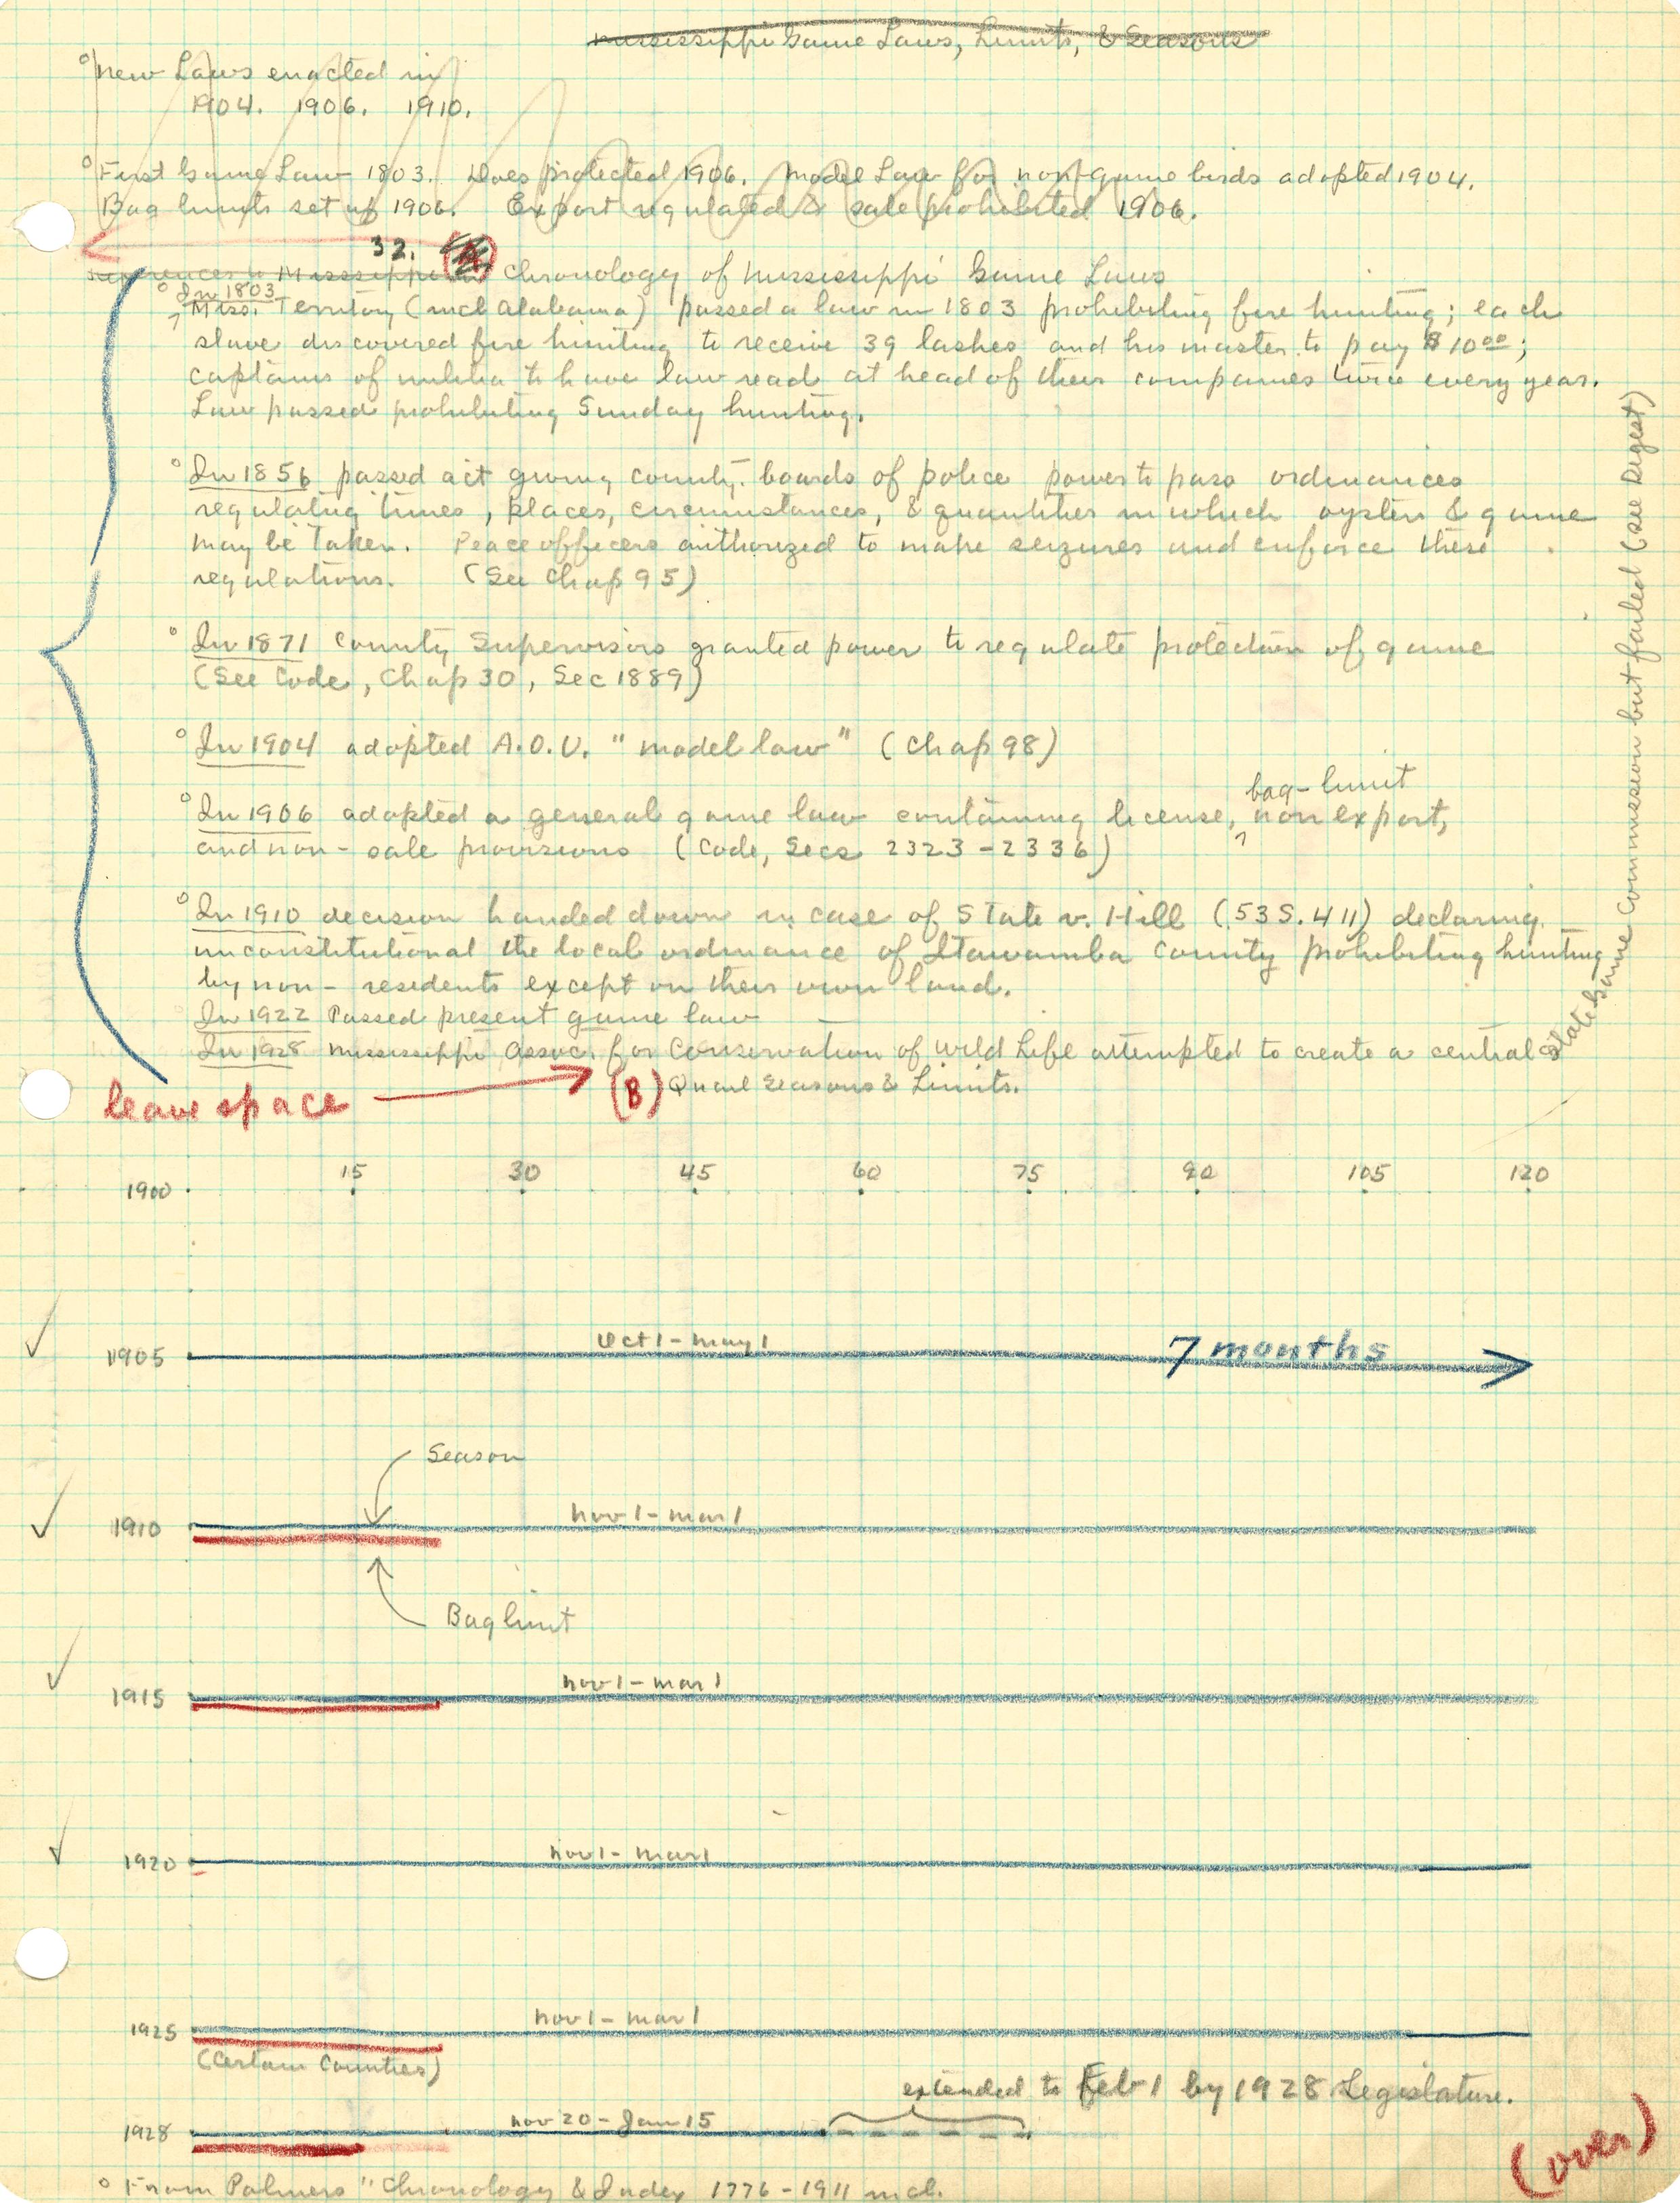 Mississippi Game Laws, Limits, & Seasons
° New Laws enacted in
1904. 1906. 1910.
° First Game Law 1803. Does protected 1906. Model Law for non-game birds adopted 1904.
Bag limits set up 1906. Export regulated & sale prohibited 1906.
32.
References to Mississippi
Chronology of Mississippi Game Laws
In 1803
° Miss. Territory (incl Alabama) passed a law in 1803 prohibiting fire hunting; each
slave discovered fire hunting to receive 39 lashes and his master to pay $10.00;
captains of militia to have law read at head of their companies twice every year.
Law passed prohibiting Sunday hunting.
° In 1856 passed act giving county boards of police power to pass ordinances
regulating times, places, circumstances, & quantities in which oysters & game
may be taken. Peace officers authorized to make seizures and enforce these
regulations. (See Chap 95)
° In 1871 County Supervisors granted power to regulate protection of game
(See Code, Chap 30, Sec 1889)
° In 1904 adopted A.O.U. "model law" (Chap 98)
bag-limit
° In 1906 adopted a general game law containing license, ^ non export,
and non-sale provisions (Code, Secs 2323-2336)
° In 1910 decision handed down in case of State v. Hill (53 S. 411) declaring
unconstitutional the local ordinance of Itawamba County prohibiting hunting
by non-residents except on their own land.
In 1922 Passed present game law
In 1928 Mississippi Assoc. for Conservation of Wild Life attempted to create a central state Game Commission but failed (see Digest)
leave space
(B) Quail Seasons & Limits.
15 30 45 60 75 90 105 120
1900
1905 Oct 1 - May 1 7 months
Season
1910 Nov 1 - Mar 1
Bag limit
1915 Nov 1 - Mar 1
1920 Nov 1 - Mar 1
1925 Nov 1 - Mar 1
(Certain Counties)
extended to Feb 1 by 1928 Legislature.
1928 Nov 20 - Jan 15
(over)
° From Palmers "Chronology & Index 1776-1911 incl.